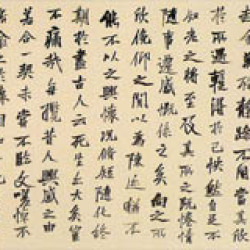 於所遇暫得於己快然自足不
知老之將至及其所之既惓情
隨事遷感慨係之矣向之所
欣俛仰之間以為陳迹猶不
能不以之興懷況脩短隨化終
期於盡古人云死生亦大矣豈
不痛哉每攬昔人興感之由
若合一契未嘗不臨文嗟悼不